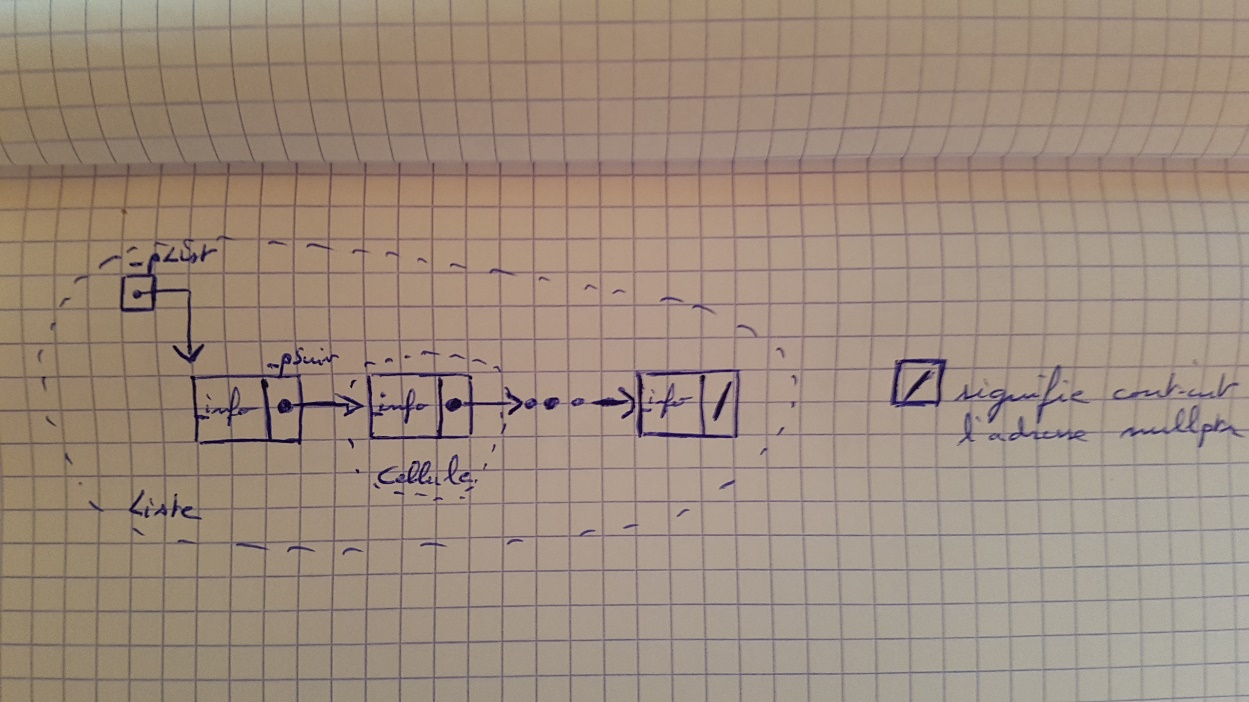 _pList
_pSuiv
_info
_info
_info
Cellule
Liste
signifie contient
l'adresse nullptr